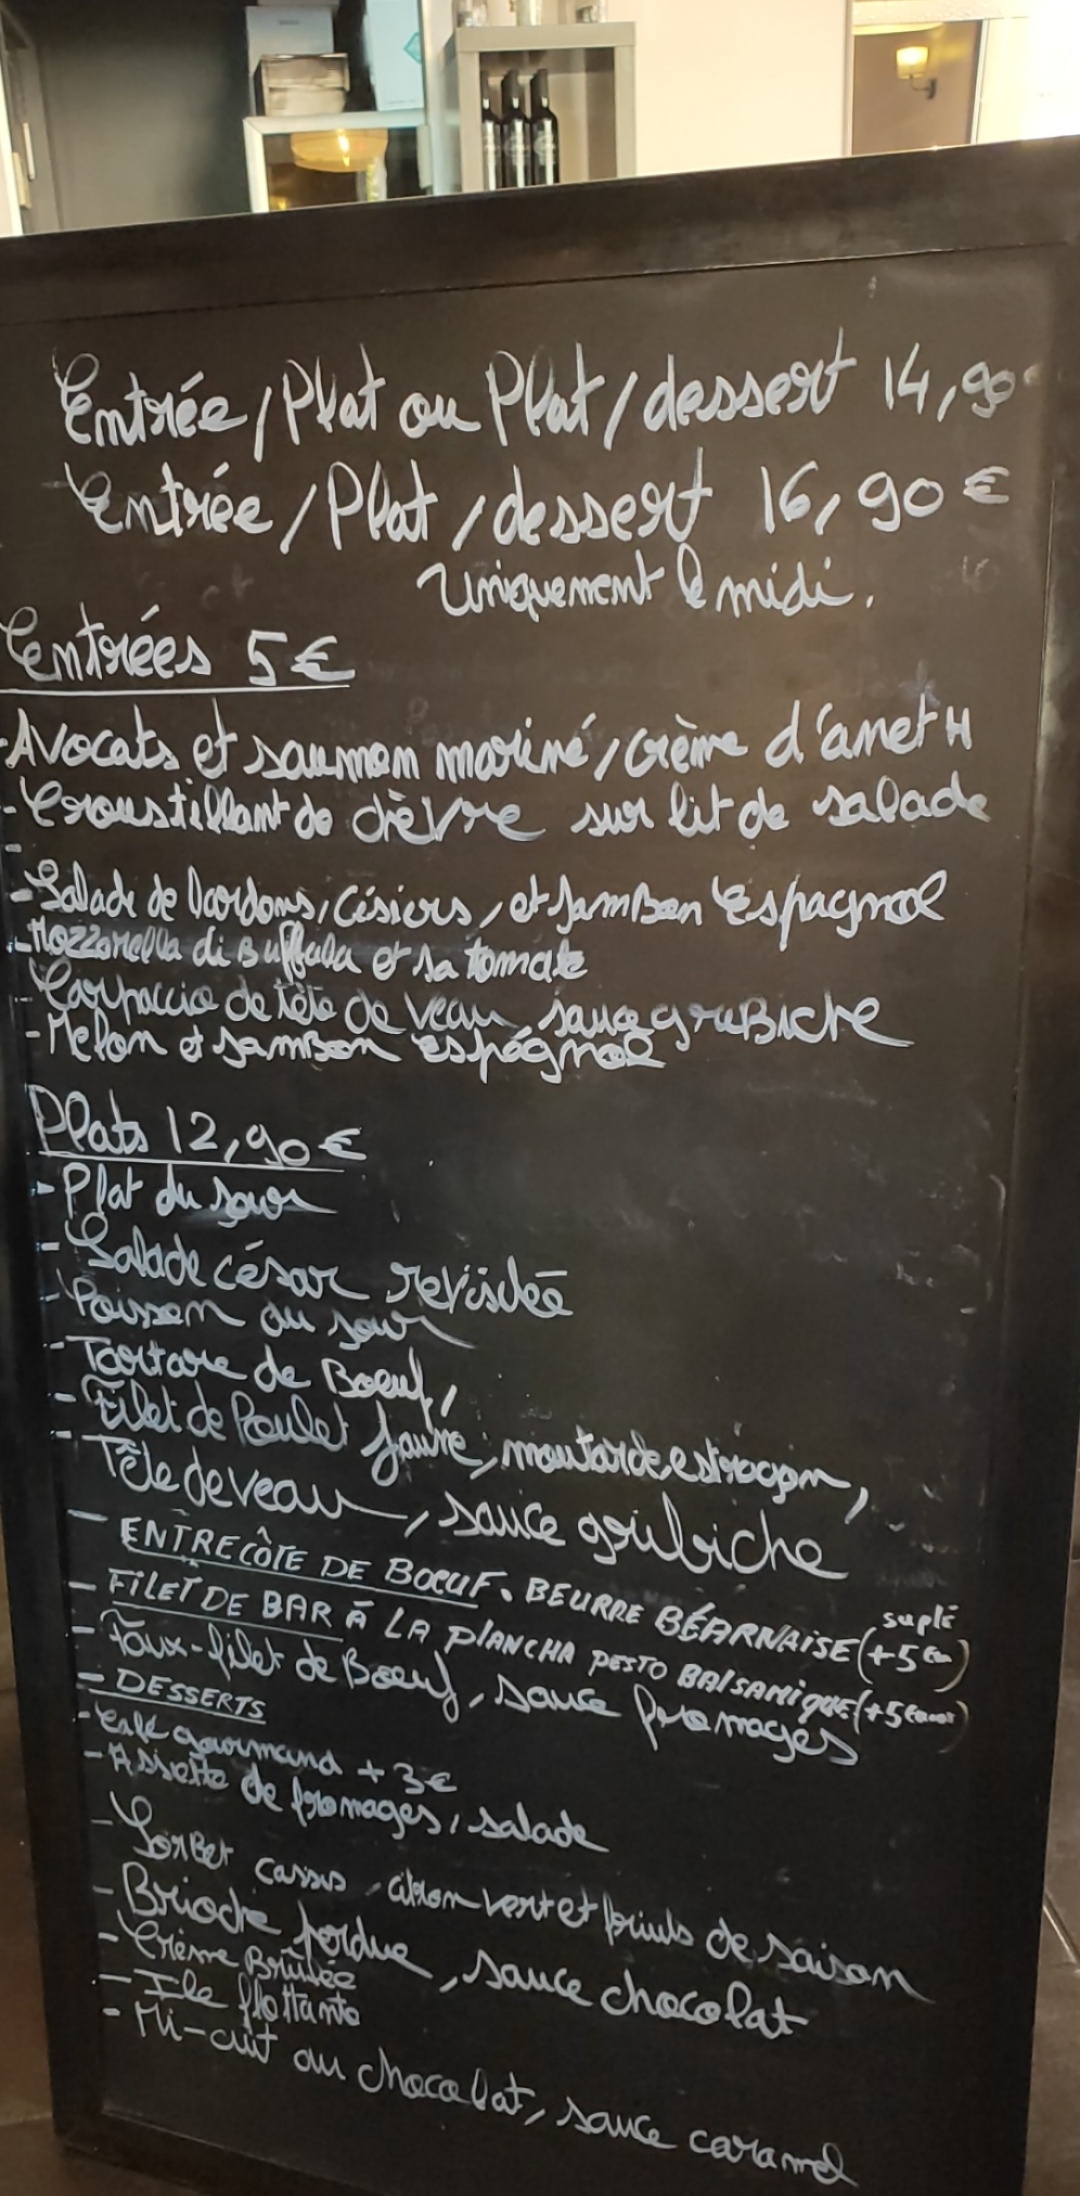 Entrée/Plat ou Plat/dessert 14,90€
Entrée/Plat/dessert 16,90€
Uniquement le midi.
Entrées 5€
-Avocats et saumon mariné/crème d'anet H
-Croustillant de chèvre sur lit de salade
-
-Salade de lardons, Gésiers, et Jambon Espagnol
-Mozzarella di Buffala et sa tomate
-Carpaccio de tête de veau, sauce gruBiche
-Melon et Jambon espagnol
Plats 12,90€
-Plat du jour
-Salade césar revisitée
-Poisson du jour
-Tartare de Boeuf,
-Filet de Poulet Jaune, moutarde estragon,
-Tête de veau, sauce gribiche
suplé
-ENTRECÔTE DE BOEUF. BEURRE BÉARNAISE (+5€)
-FILET DE BAR À LA PLANCHA PESTO BALSAMIQUE (+5
-Faux-filet de Boeuf, sauce fromages
-DESSERTS
-Café gourmand +3€
-Assiette de fromages, salade
-Sorbet cassis, citron vert et fruits de saison
-Brioche perdue, sauce chocolat
-Crème Brûlée
-Ile flottante
-Mi-cuit au chocolat, sauce caramel